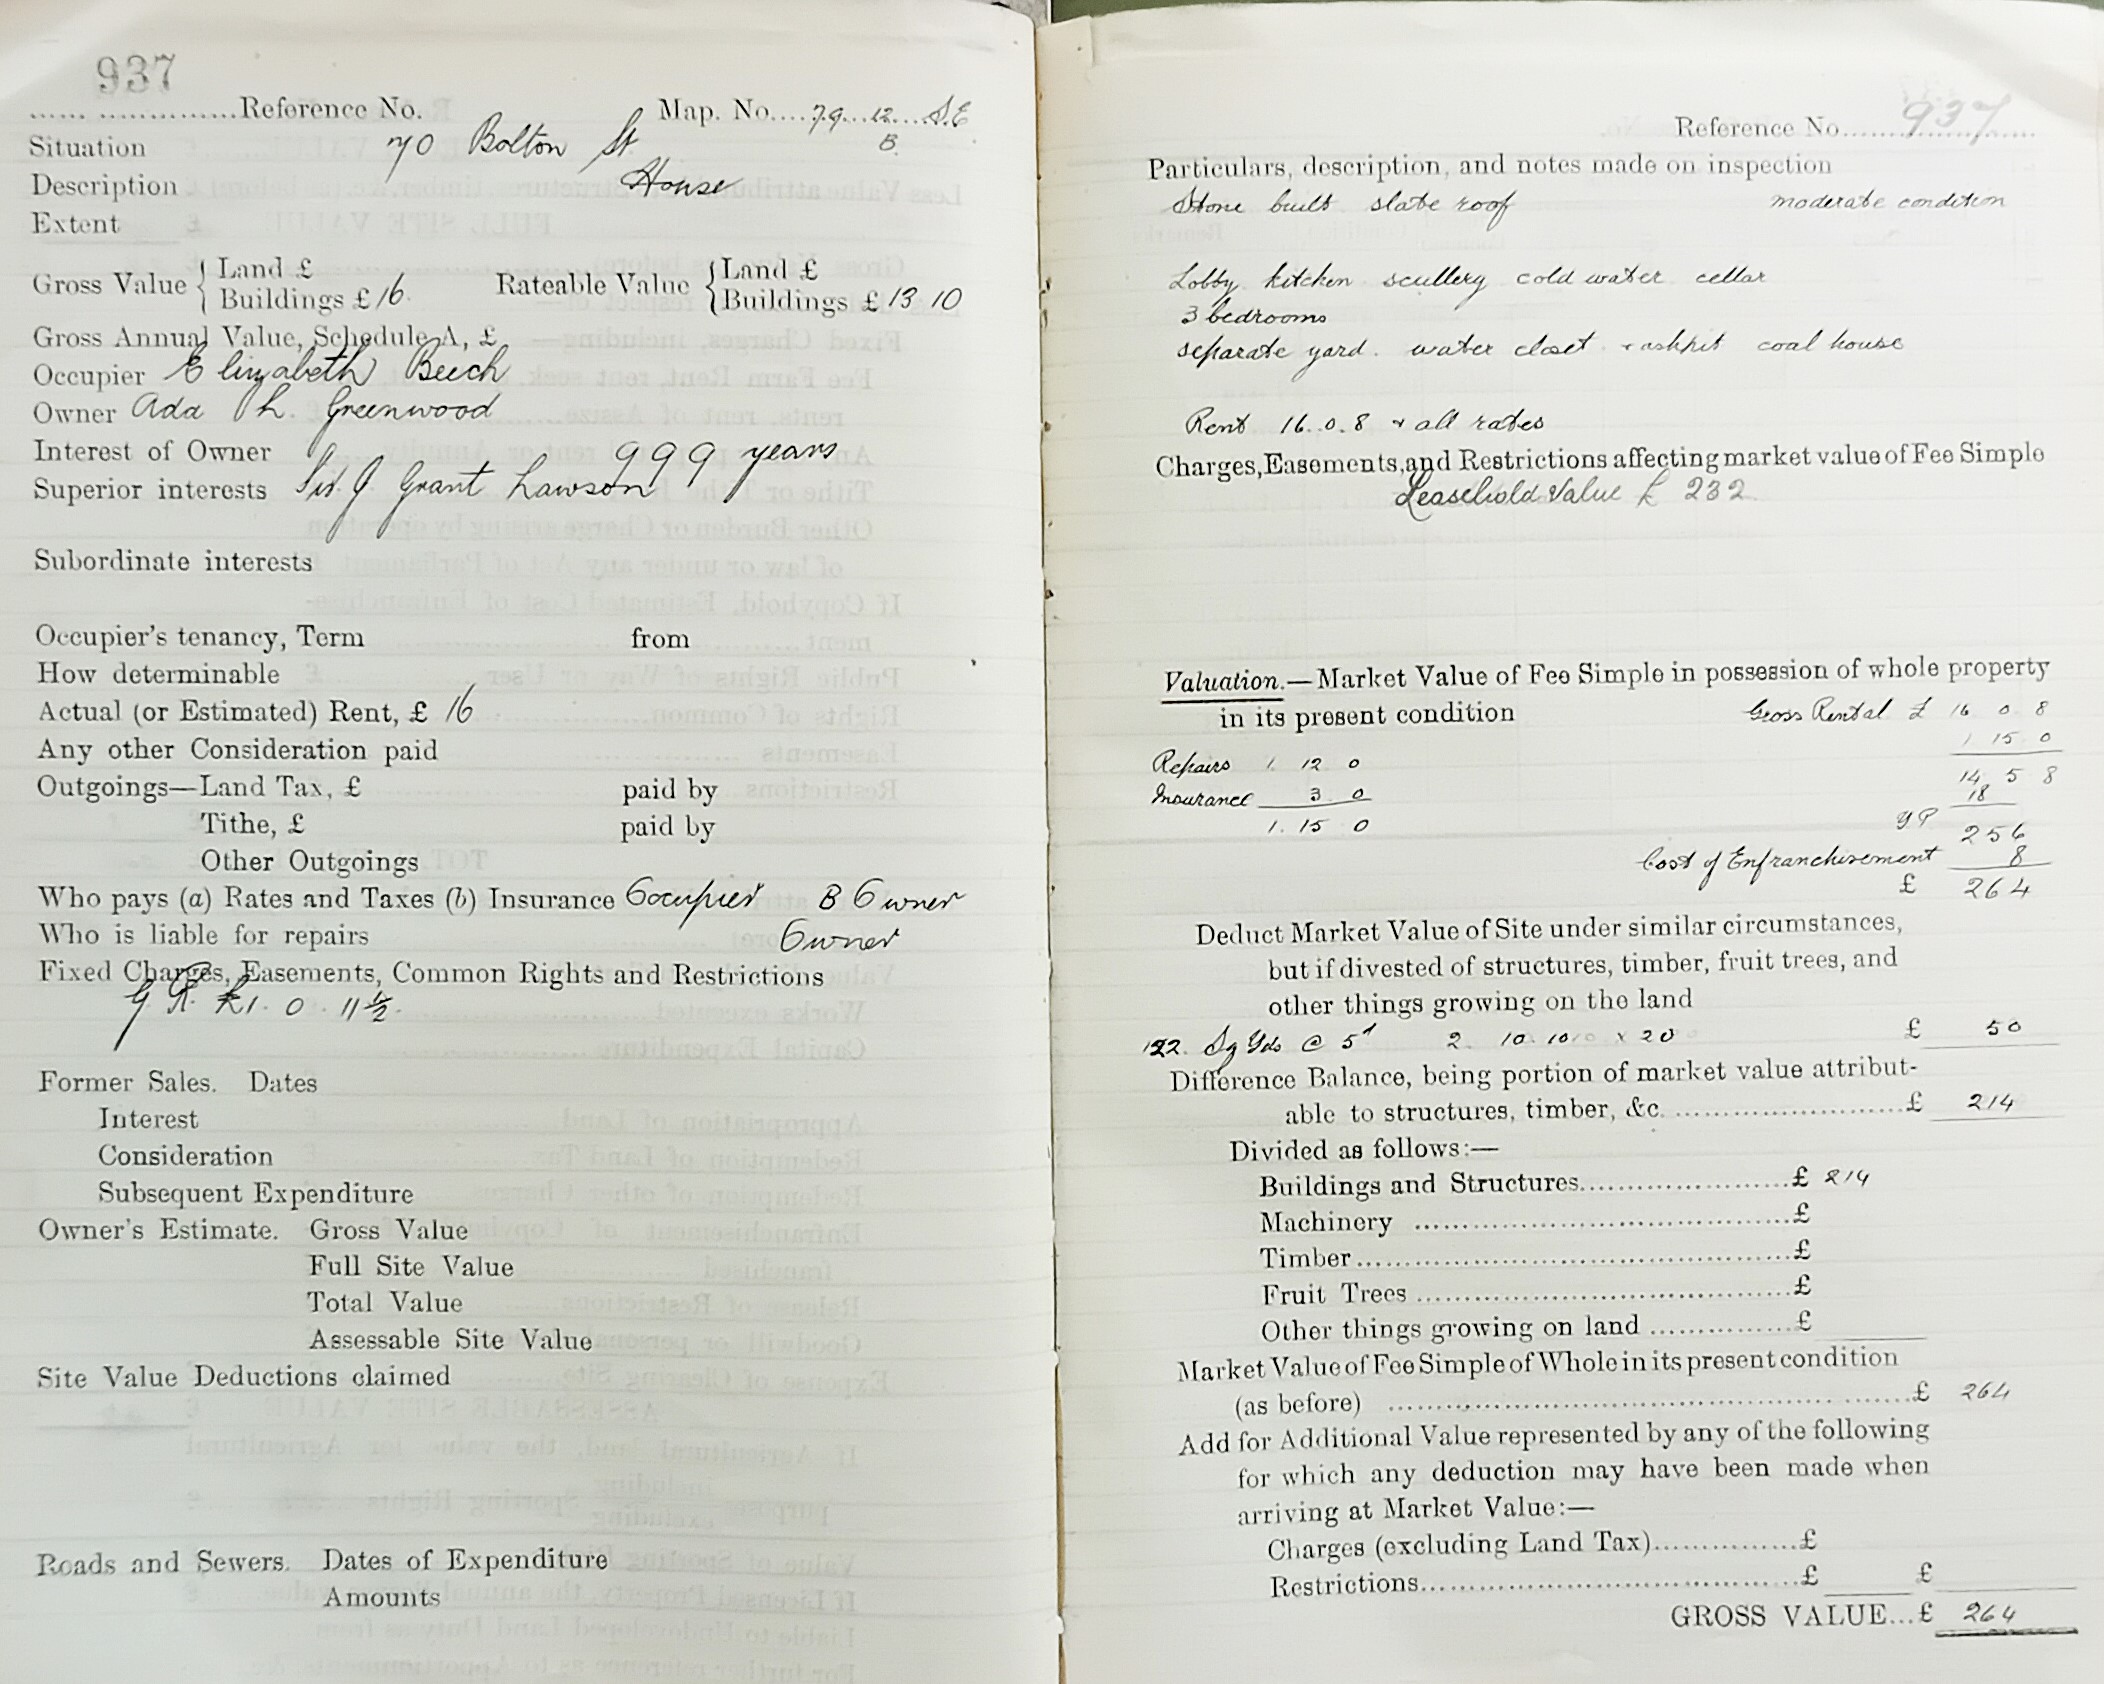 937
Reference No. Map. No. 79 12 S.E
B.
Situation 70 Bolton St
Description House
Extent
Gross Value { Land £ Rateable Value { Land £
Buildings £ 16. Buildings £ 13 10
Gross Annual Value, Schedule A, £
Occupier Elizabeth Beech
Owner Ada H. Greenwood
Interest of Owner 999 years
Superior interests Sir. J Grant Lawson
Subordinate interests
Occupier's tenancy, Term from
How determinable
Actual (or Estimated) Rent, £ 16
Any other Consideration paid
Outgoings—Land Tax, £ paid by
Tithe, £ paid by
Other Outgoings
Who pays (a) Rates and Taxes (b) Insurance Occupier B Owner
Who is liable for repairs Owner
Fixed Charges, Easements, Common Rights and Restrictions
G. R. £1. 0. 11½.
Former Sales. Dates
Interest
Consideration
Subsequent Expenditure
Owner's Estimate. Gross Value
Full Site Value
Total Value
Assessable Site Value
Site Value Deductions claimed
Roads and Sewers. Dates of Expenditure
Amounts
Reference No. 937
Particulars, description, and notes made on inspection
Stone built slate roof moderate condition
Lobby kitchen scullery cold water cellar
3 bedrooms
separate yard. water closet + ashpit coal house
Rent 16. 0. 8 + all rates
Charges, Easements, and Restrictions affecting market value of Fee Simple
Leasehold Value £ 232
Valuation.—Market Value of Fee Simple in possession of whole property
in its present condition Gross Rental £ 16 0 8
1 15 0
Repairs 1. 12 0 14 5 8
Insurance 3 0 18
1. 15 0 YP 256
Cost of Enfranchisement 8
£ 264
Deduct Market Value of Site under similar circumstances,
but if divested of structures, timber, fruit trees, and
other things growing on the land
122. Sq Yds @ 5d 2. 10. 10 x 20 £ 50
Difference Balance, being portion of market value attribut-
able to structures, timber, &c. £ 214
Divided as follows:—
Buildings and Structures £ 214
Machinery £
Timber £
Fruit Trees £
Other things growing on land £
Market Value of Fee Simple of Whole in its present condition
(as before) £ 264
Add for Additional Value represented by any of the following
for which any deduction may have been made when
arriving at Market Value:—
Charges (excluding Land Tax) £
Restrictions £ £
GROSS VALUE... £ 264